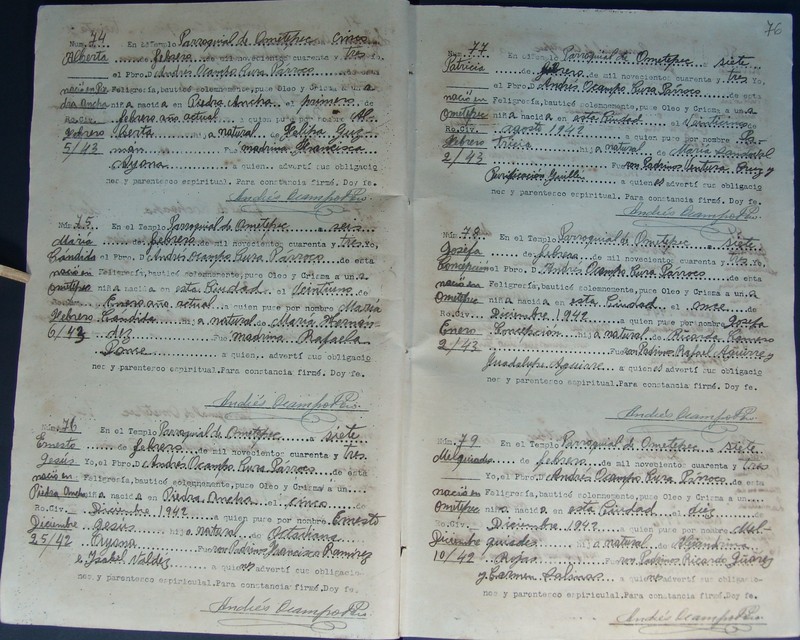 Núm. 44 En el Templo Parroquial de Ometepec a cinco
Alberta de febrero de mil novecientos cuarenta y tres Yo,
el Pbro. D. Andrés Ocampo Cura Párroco de esta
nació en Pie Feligresía, bauticé solemnemente, puse Oleo y Crisma a un a
dra Ancha niña nacida en Piedra Ancha el primero de
Ro. Civ. febrero año actual a quien puse por nombre Al
febrero berta hija natural de Felipa Guz
5/43 mán Fue madrina Francisca
Ayona a quien advertí sus obligacio
nes y parentesco espiritual. Para constancia firmé. Doy fe.
Andrés Ocampo Pro.
Núm. 75 En el Templo Parroquial de Ometepec a seis
María de febrero de mil novecientos cuarenta y tres, Yo,
Candida el Pbro. D. Andrés Ocampo Cura Párroco de esta
nació en Feligresía, bauticé solemnemente, puse Oleo y Crisma a un a
Ometepec niña nacida en esta Ciudad el veintiuno de
Ro. Civ. Enero año actual a quien puse por nombre María
febrero Candida hija natural de María Hernán
6/43 dez Fue madrina Rafaela
Ponce a quien advertí sus obligacio
nes y parentesco espiritual. Para constancia firmé. Doy fe.
Andrés Ocampo Pro.
Núm. 76 En el Templo Parroquial de Ometepec a siete
Ernesto de febrero de mil novecientos cuarenta y tres
Jesús Yo, el Pbro. D. Andrés Ocampo Cura Párroco de esta
nació en Feligresía, bauticé solemnemente, puse Oleo y Crisma a un
Piedra Ancha niño nacido en Piedra Ancha el cinco de
Ro. Civ. Diciembre 1942 a quien puse por nombre Ernesto
Diciembre Jesús hijo natural de Octaviana
25/42 Fueron Padrinos Narciza Ramírez
e Isabel Valdez a quienes advertí sus obligacio-
nes y parentesco espiritual. Para constancia firmé. Doy fe.
Andrés Ocampo Pro.
76
Núm. 77 En el Templo Parroquial de Ometepec a siete
Patricia de febrero de mil novecientos cuarenta y tres Yo,
el Pbro. D. Andrés Ocampo Cura Párroco de esta
nació en Feligresía, bauticé solemnemente, puse Oleo y Crisma a un a
Ometepec niña nacida en esta Ciudad el veinticinco de
Ro. Civ. agosto 1942 a quien puse por nombre Pa-
febrero tricia hija natural de María
2/43 Fueron Padrinos Ventura Cruz y
Purificación Guillén a quienes advertí sus obligacio
nes y parentesco espiritual. Para constancia firmé. Doy fe.
Andrés Ocampo Pro.
Núm. 78 En el Templo Parroquial de Ometepec a siete
Josefa de febrero de mil novecientos cuarenta y tres Yo,
Concepción el Pbro. D. Andrés Ocampo Cura Párroco de esta
nació en Feligresía, bauticé solemnemente, puse Oleo y Crisma a un a
Ometepec niña nacida en esta Ciudad el once de
Ro. Civ. Diciembre 1942 a quien puse por nombre Josefa
Enero Concepción hija natural de Ricarda Romero
2/43 Fueron Padrinos Rafael Aguirre y
Guadalupe Aguirre a quienes advertí sus obligacio
nes y parentesco espiritual. Para constancia firmé. Doy fe.
Andrés Ocampo Pro.
Núm. 79 En el Templo Parroquial de Ometepec a siete
Melquiades de febrero de mil novecientos cuarenta y tres
Yo, el Pbro. D. Andrés Ocampo Cura Párroco de esta
nació en Feligresía, bauticé solemnemente, puse Oleo y Crisma a un
Ometepec niño nacido en esta Ciudad el diez de
Ro. Civ. Diciembre 1942 a quien puse por nombre Mel-
Diciembre quiades hijo natural de
10/42 Rojas Fueron Padrinos Ricardo Juárez
y Carmen Salinas a quienes advertí sus obligacio-
nes y parentesco espiritual. Para constancia firmé. Doy fe.
Andrés Ocampo Pro.